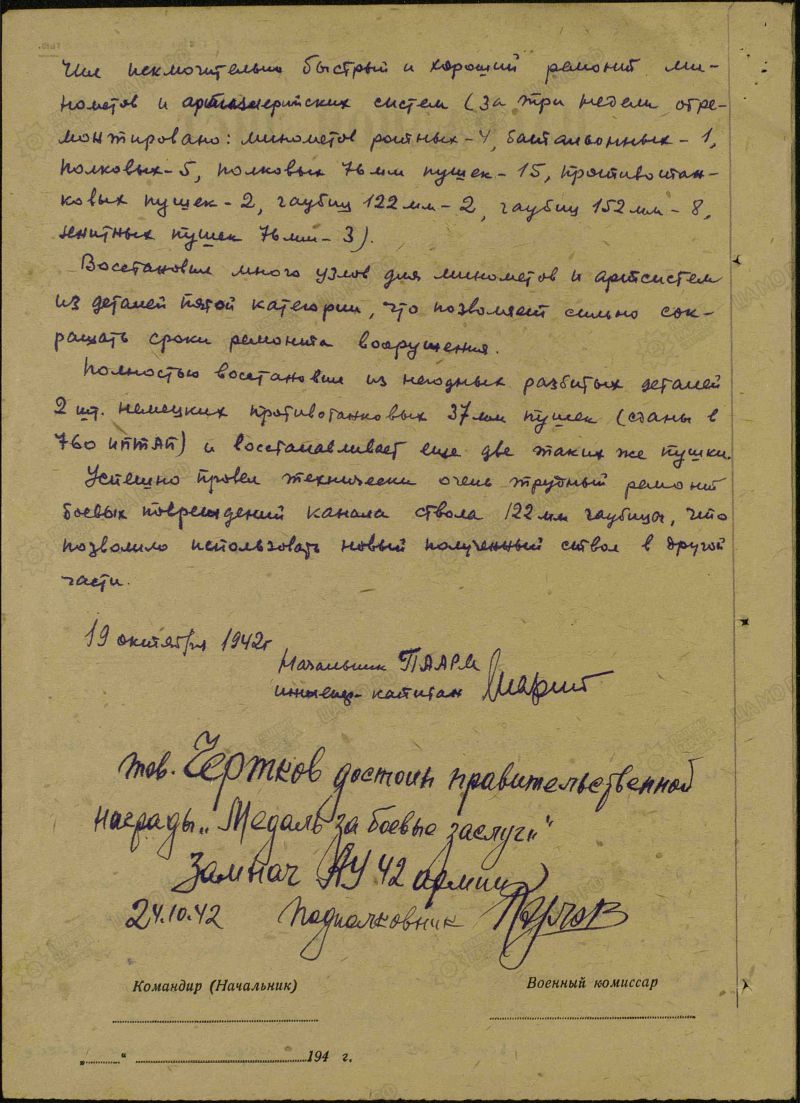 чил исключительно быстрый и хороший ремонт ми-
нометов и артиллерийских систем (за три недели отре-
монтировано: минометов ротных-4, батальонных-1,
полковых-5, полковых 76 мм пушек-15, противотан-
ковых пушек-2, гаубиц 122 мм-2, гаубиц 152 мм-8,
зенитных пушек 76 мм-3).
Восстановил много узлов для минометов и артсистем
из деталей пятой категории, что позволяет сильно сок-
ращать сроки ремонта вооружения.
Полностью восстановил из негодных разбитых деталей
2 шт. немецких противотанковых 37 мм пушек (сданы в
760 ИПТАП) и восстанавливает еще две таких же пушки.
Успешно провел технически очень трудный ремонт
боевых повреждений канала ствола 122 мм гаубицы, что
позволило использовать новый полученный ствол в другой
части.
19 октября 1942г
Начальник ПААРМ
инженер-капитан
тов. Чертков достоин правительственной
награды „Медаль за боевые заслуги"
Замнач АУ 42 армии
24.10.42 Подполковник
Командир (Начальник) Военный комиссар
„ " 194 г.